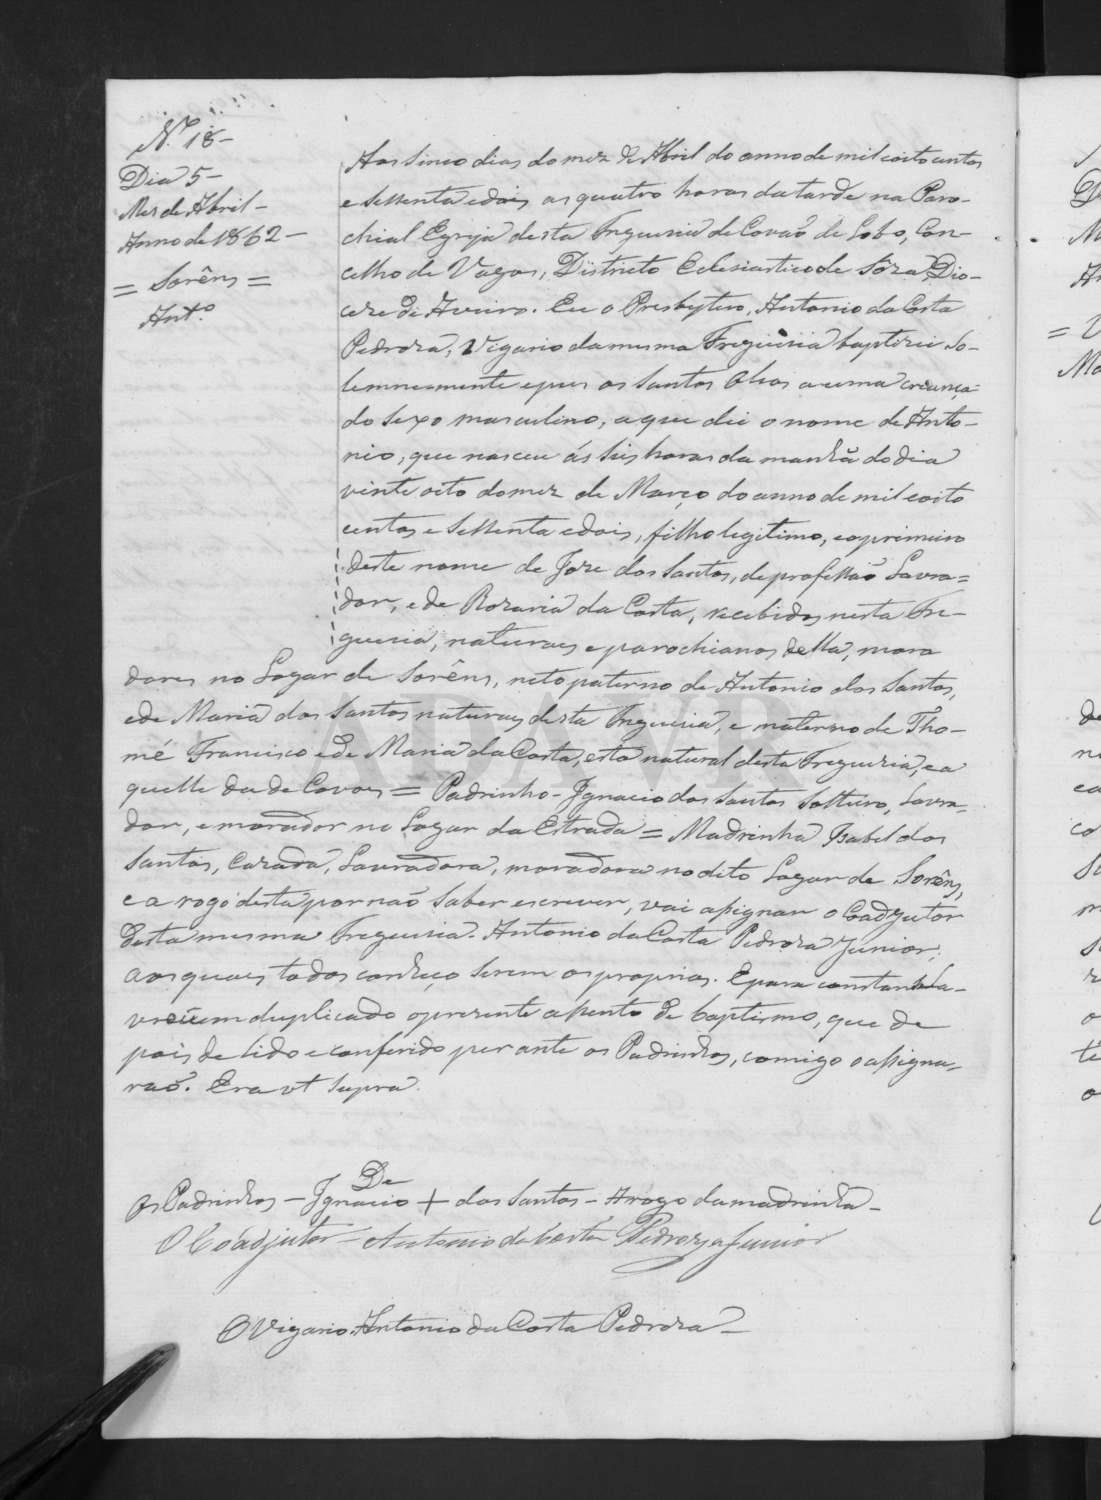 N.º 18-
Dia 5-
Mes de Abril-
Anno de 1862-
= Sorêns =
Ant.º
Aos sinco dias do mez de Abril do anno de mil e oito centos
e sessenta e dois as quatro horas da tarde na Paro-
chial Egreja desta Freguesia de Covão de Lobo, Con-
celho de Vagos, Districto Eclesiastico de Sóza, Dio-
ceze de Aveiro. Eu o Presbytero, Antonio da Costa
Pedroza, Vigario da mesma Freguesia baptizei So-
lemnemente e pus os Santos Oleos a uma creança
do sexo masculino, a que dei o nome de Anto-
nio, que nasceu ás seis horas da manhã do dia
vinte oito do mez de Março do anno de mil e oito
centos e sessenta e dois, filho legitimo, e o primeiro
deste nome de Joze dos Santos, de profissão Lavra=
dor, e de Rozaria da Costa, recebidos nesta Fre-
guesia, naturaes e parochianos della, mora
dores no Logar de Sorêns, neto paterno de Antonio dos Santos,
e de Maria dos Santos naturaes desta Freguesia, e materno de Tho-
mé Francisco e de Maria da Costa, esta natural desta Freguezia, e a
quelle da de Covoes = Padrinho - Ignacio dos Santos Solteiro, Lavra-
dor, e morador no Logar da Estrada = Madrinha Izabel dos
Santos, Cazada, Lavradora, moradora no dito Logar de Sorêns,
e a rogo desta por naõ saber escrever, vai assignar o Coadjutor
desta mesma Freguesia. Antonio da Costa Pedroza Junior;
aos quaes todos conheço serem os proprios. E para constar La-
vrei em duplicado o prezente assento de baptismo, que de
pois de lido e conferido perante os Padrinhos, comigo o assigna-
raõ. Era ut supra.
De
Os Padrinhos - Ignacio + dos Santos - A rogo da madrinha -
O Coadjutor - Antonio da Costa Pedroza Junior
O Vigario Antonio da Costa Pedroza -